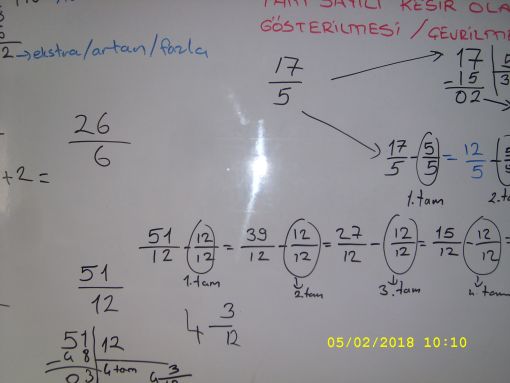 TAM SAYILI KESİR OLA
GÖSTERİLMESİ / ÇEVRİLME
2 → ekstra/artan/fazla
17/5
17 | 5
- 15 | 3
02
26/6
+2=
17/5 - 5/5 = 12/5 - 5/5
1. tam 2. ta
51/12 - 12/12 = 39/12 - 12/12 = 27/12 - 12/12 = 15/12 - 12/12 =
1. tam 2. tam 3. tam 4. tam
51/12
4 3/12
51 | 12
- 48 | 4 tam
03
4 3/12
05/02/2018 10:10